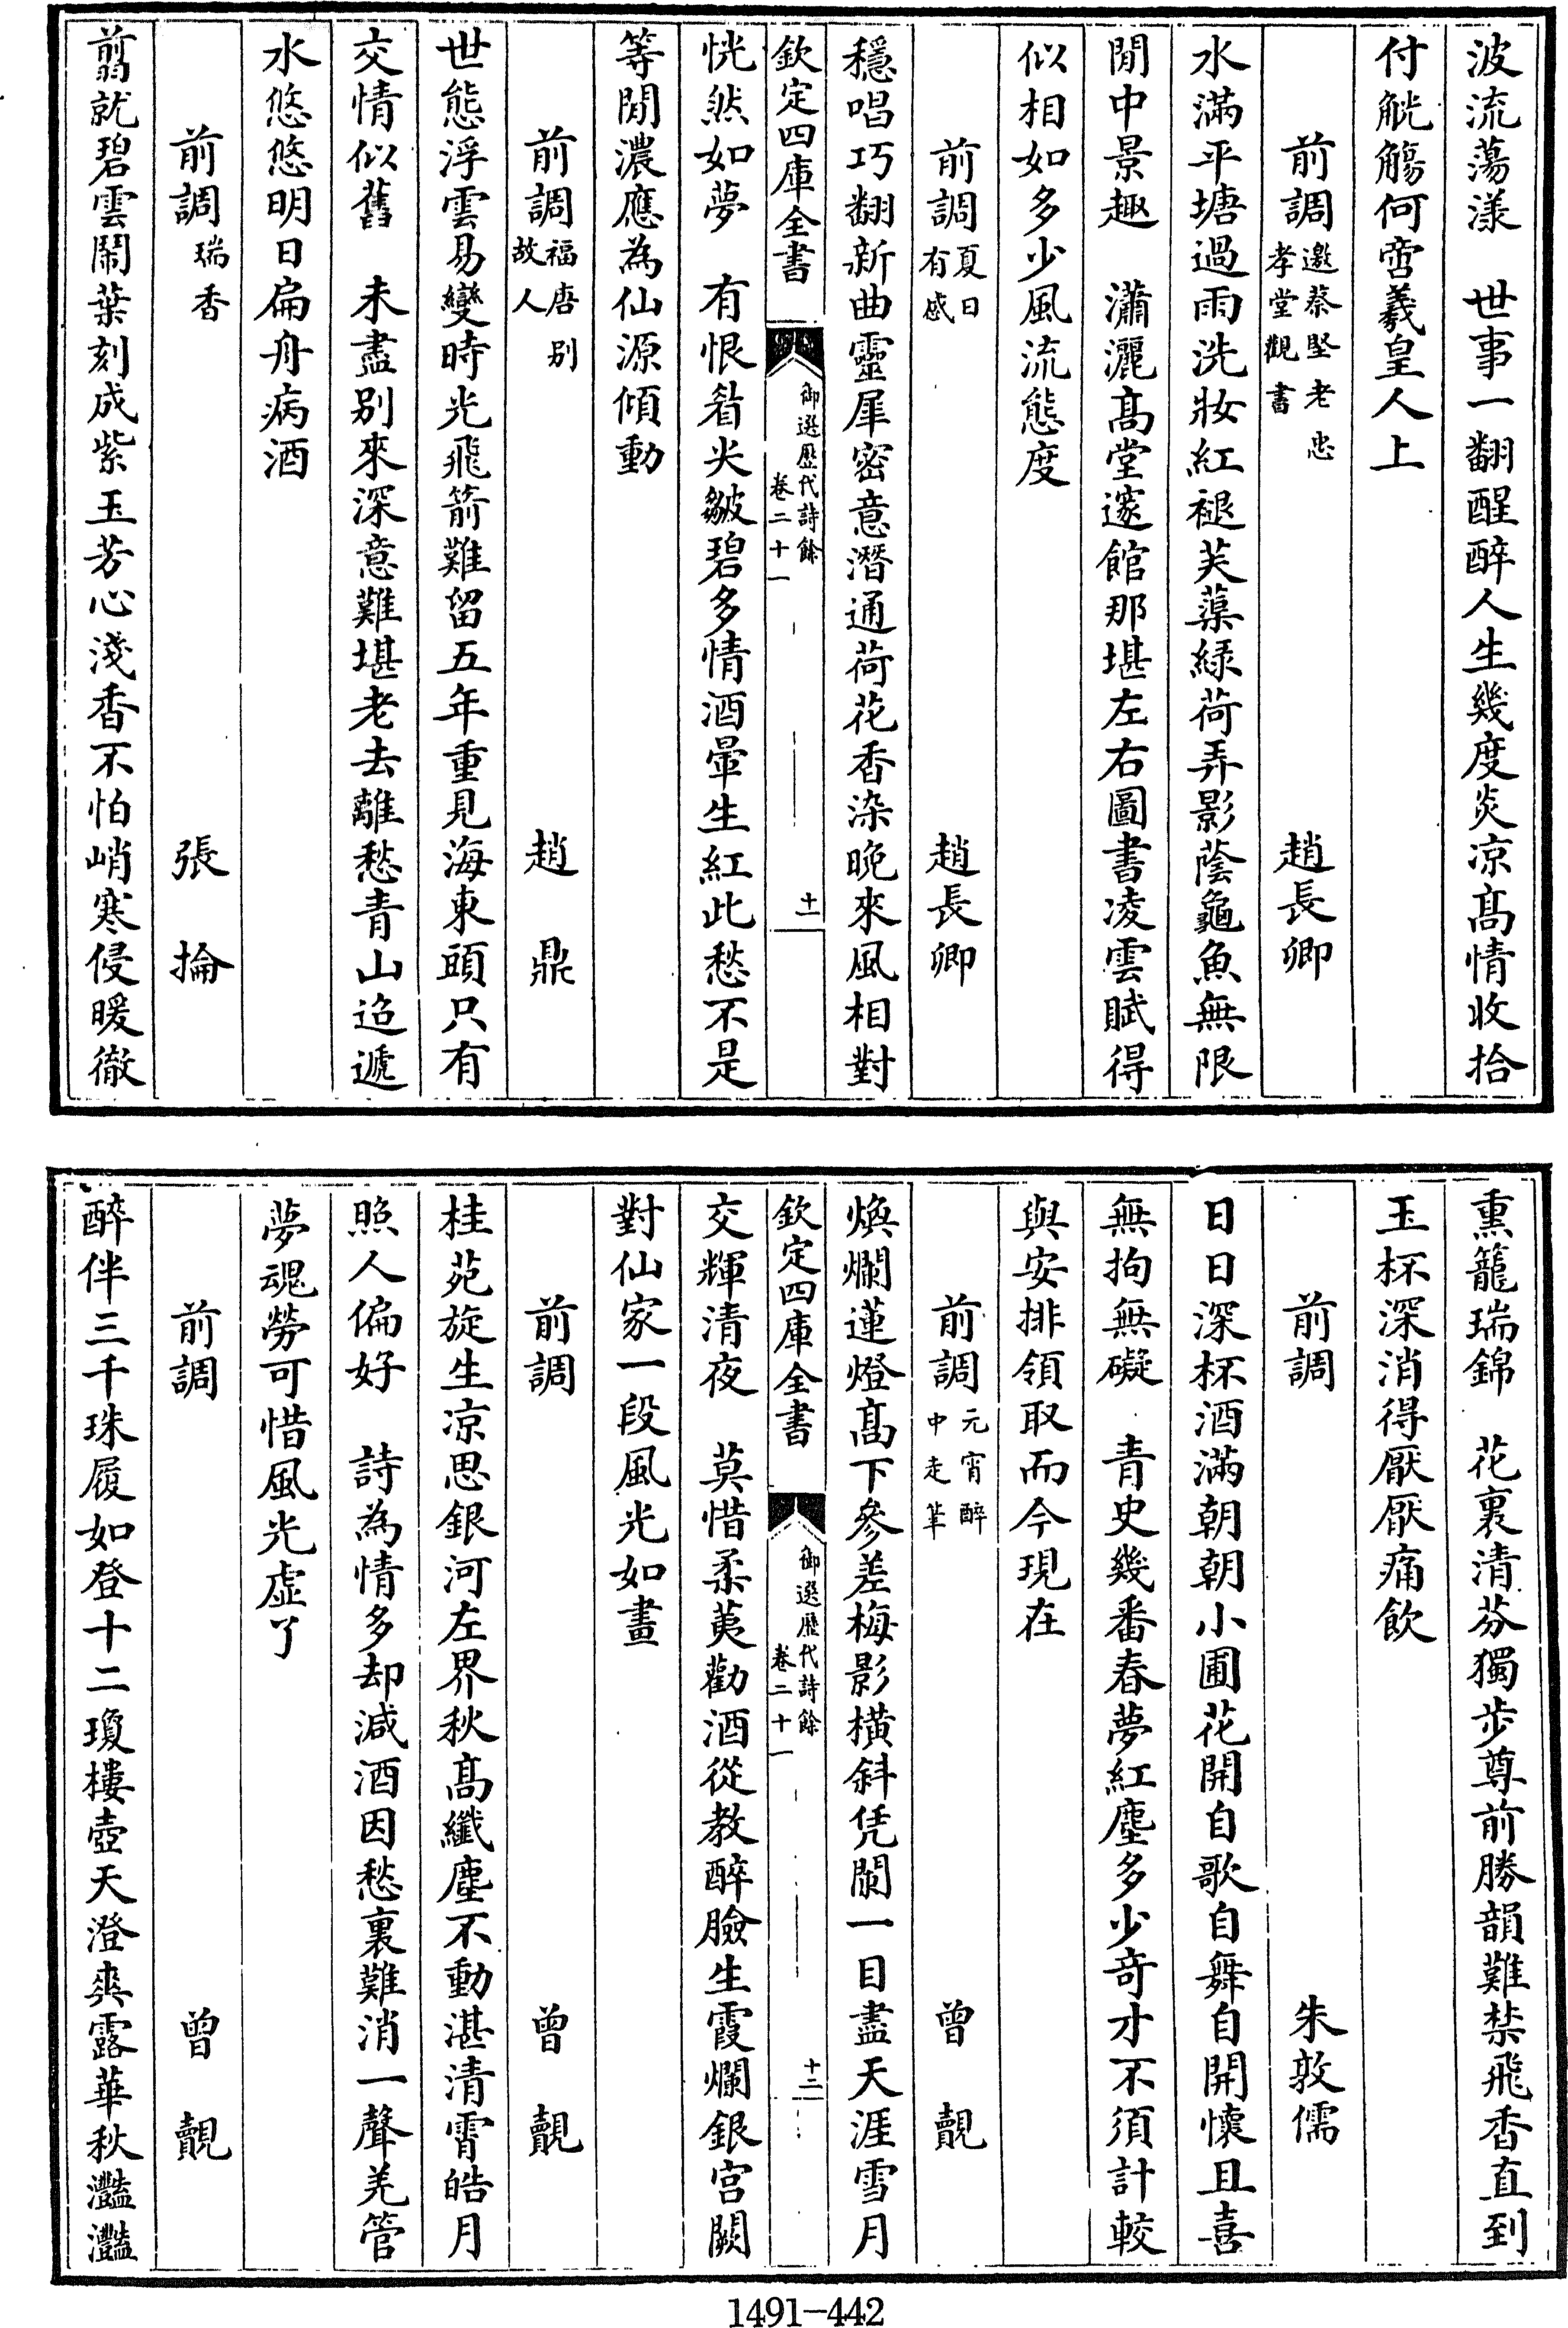 波流蕩漾　世事一翻醒醉人生幾度炎凉髙情收拾
付觥觴何啻羲皇人上
前調邀蔡堅老忠孝堂觀書　趙長卿
水滿平塘過雨洗妝紅褪芙蕖緑荷弄影蔭龜魚無限
閒中景趣　瀟灑髙堂邃館那堪左右圖書凌雲賦得
似相如多少風流態度
前調夏日有感　趙長卿
穩唱巧翻新曲靈犀密意潛通荷花香染晩來風相對
欽定四庫全書　御選歴代詩餘卷二十一　十一
恍然如夢　有恨眉尖皺碧多情酒暈生紅此愁不是
等閒濃應為仙源傾動
前調福唐别故人　趙鼎
世態浮雲易變時光飛箭難留五年重見海東頭只有
交情似舊　未盡别來深意難堪老去離愁青山迢遞
水悠悠明日扁舟病酒
前調瑞香　張掄
翦就碧雲鬧葉刻成紫玉芳心淺香不怕峭寒侵暖徹
熏籠瑞錦　花裏清芬獨步尊前勝韻難禁飛香直到
玉杯深消得厭厭痛飲
前調　朱敦儒
日日深杯酒滿朝朝小圃花開自歌自舞自開懷且喜
無拘無礙　青史幾番春夢紅塵多少奇才不須計較
與安排領取而今現在
前調元宵醉中走筆　曾覿
煥爛蓮燈髙下參差梅影橫斜凭闌一目盡天涯雪月
欽定四庫全書　御選歴代詩餘卷二十一　十二
交輝清夜　莫惜柔荑勸酒從教醉臉生霞爛銀宫闕
對仙家一段風光如畫
前調　曾覿
桂苑旋生凉思銀河左界秋髙纖塵不動湛清霄皓月
照人偏好　詩為情多却減酒因愁裏難消一聲羌管
夢魂勞可惜風光虚了
前調　曾覿
醉伴三千珠履如登十二瓊樓壺天澄爽露華秋灩灩
1491-442